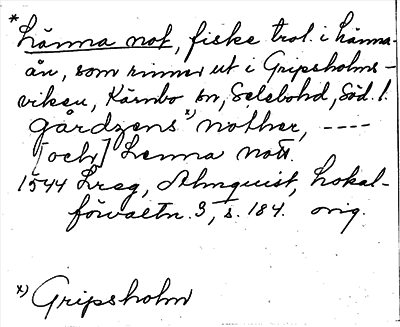 * Länna not, fiske trol. i Länna-
ån, som rinner ut i Gripsholms-
viken, Kärnbo sn, Selebohd, Söd.l.
gårdzens x) nother, ----
[och] Lenna nott.
1544 Lreg, Almquist, Lokal-
förvaltn. 3, s. 184. orig.
x) Gripsholm